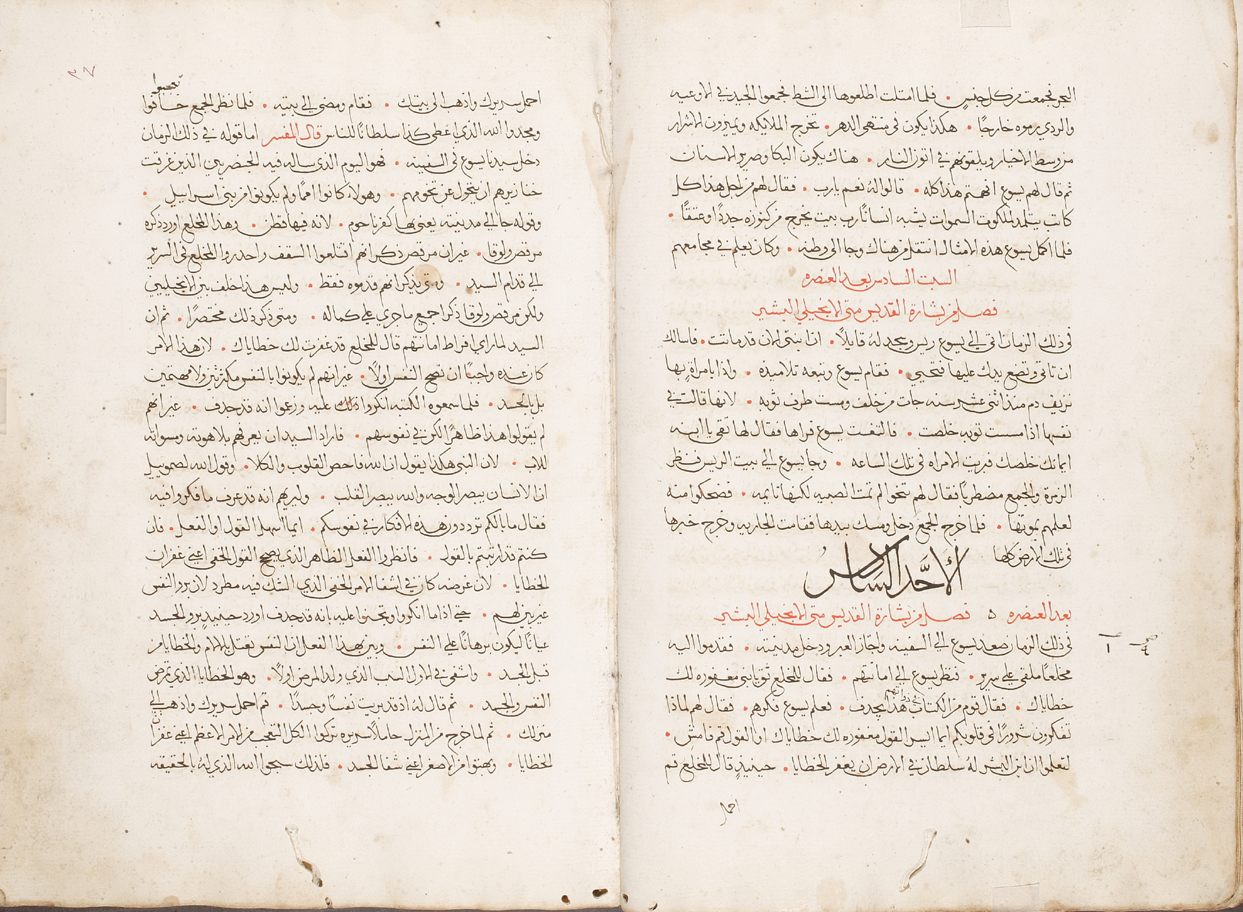 البحر فجمعت من كل جنس • فلما امتلت اطلعوها الى الشط فجمعوا الجيد في الاوعيه
والردي رموه خارجًا • هكذا يكون في منتهى الدهر • تخرج الملايكه ويميزون الاشرار
من وسط الاخيار ويلقونهم في اتون النار • هناك يكون البكا وصرير الاسنان
ثم قال لهم يسوع افهمتم هذا كله • قالوا له نعم يارب • فقال لهم من اجل هذا كل
كاتب يتلمد لملكوت السموات يشبه انسانًا رب بيت يخرج من كنوزه جددًا وعتقًا •
فلما اكمل يسوع هذه الامثال انتقل من هناك وجا الى وطنه • وكان يعلم في مجامعهم
السبت السادس بعد العنصره
فصل من بشارة القديس متى الانجيلي البشير
في ذلك الزمان اتى الى يسوع ريس وسجد له قايلًا • ان ابنتي الان قد ماتت • فاسالك
ان تاتي وتضع يدك عليها فتحيى • فقام يسوع وتبعه تلاميذه • واذا بامراة بها
نزيف دم منذ اثنى عشر سنه جات من خلف ومست طرف ثوبه • لانها قالت في
نفسها اذا مسست ثوبه خلصت • فالتفت يسوع فراها فقال لها ثقي يا ابنه
ايمانك خلصك فبريت الامراه في تلك الساعه • وجا يسوع الى بيت الريس فنظر
الزمرة والجمع مضطربًا فقال لهم تنحوا لم تمت الصبيه لكنها نايمه • فضحكوا منه
لعلمهم بموتها • فلما خرج الجمع دخل ومسك بيدها فقامت الجاريه وخرج خبرها
في تلك الارض كلها
الأحد السادس
بعد العنصره ه فصل من بشارة القديس متى الانجيلي البشير
في ذلك الزمان صعد يسوع الى السفينه واجاز العبر ودخل مدينته • فقدموا اليه
مخلعًا ملقى على سرير • فنظر يسوع الى امانتهم • فقال للمخلع ثق يا بني مغفوره لك
خطاياك • فقال قوم من الكتاب في ذاتهم هذا يجدف • فعلم يسوع فكرهم • فقال لهم لماذا
تفكرون شرورًا في قلوبكم ايما ايسر القول مغفوره لك خطاياك او القول قم فامش •
لتعلموا ان ابن البشر له سلطان في الارض ان يغفر الخطايا • حينيذٍ قال للمخلع قم
احمل
٣٧
احمل سريرك واذهب الى بيتك • فقام ومضى الى بيته • فلما نظر الجمع خافوا
ومجدوا الله الذي اعطى كذا سلطانًا للناس قال المفسر اما قوله في ذلك الزمان
دخل سيدنا يسوع في السفينه • فهو اليوم الذي ساله فيه الجرجسيين الذين غرقت
خنازيرهم ان يتحول عن تخومهم • وهولاء كانوا اممًا ولم يكونوا من بني اسراييل •
وقوله جا الى مدينته يعني بها كفرناحوم • لانه فيها قطن • وهذا المخلع اورد ذكره
مرقص ولوقا • غير ان مرقص ذكر انهم اقتلعوا السقف واحدروا المخلع في السرير
الى قدام السيد • ومتى يذكر انهم قدموه فقط • وليس هذا خلف بين الانجيليين
ولكن مرقص ولوقا ذكرا جميع ما جرى على كماله • ومتى ذكر ذلك مختصرًا • ثم ان
السيد لما راى افراط امانتهم قال للمخلع قد غفرت لك خطاياك • لان هذا الامر
كان عنده واجبًا ان تصح النفس اولًا • غير انهم لم يكونوا بالنفس مكترثين ولا مهتمين
بل بالجسد • فلما سمعوه الكتبه انكروا ذلك عليه وزعموا انه قد جدف • غير انهم
لم يقولوا هذا ظاهرًا لكن في نفوسهم • فاراد السيد ان يعرفهم بلاهوته ومساواته
للاب • لان النبي هكذا يقول ان الله فاحص القلوب والكلا • وقول الله لصمويل
ان الانسان يبصر الوجه والله يبصر القلب • وليريهم انه قد عرف ما فكروا فيه
فقال ما بالكم ترددون هذه الافكار في نفوسكم • ايما اسهل القول او الفعل • فان
كنتم قد ارتبتم بالقول • فانظروا الفعل الظاهر الذي يصحح القول الخفي اعني غفران
الخطايا • لان غرضه كان في اشفا الامر الخفي الذي الشك فيه مطرد لان برو النفس
غير بين لهم • حتى اذا ما انكروا وتحققوا عليه بانه قد جدف اورد حينيذٍ برو الجسد
عيانًا ليكون برهانًا على النفس • وبين بهذا الفعل ان النفس تعتل بالالام والخطايا من
قبل الجسد • واشفى في الاول السبب الذي ولد المرض اولًا • وهو الخطايا الذي تمرض
النفس والجسد • ثم قال له اذ قد بريت نفسًا وجسدًا • قم احمل سريرك واذهب الى
منزلك • ثم لما خرج من المنزل حاملًا سريره تركوا الكل التعجب من الامر الاعظم اعني غفران
الخطايا • وبهتوا من الاصغر اعني شفا الجسد • فلذلك سبحوا الله الذي له بالحقيقه